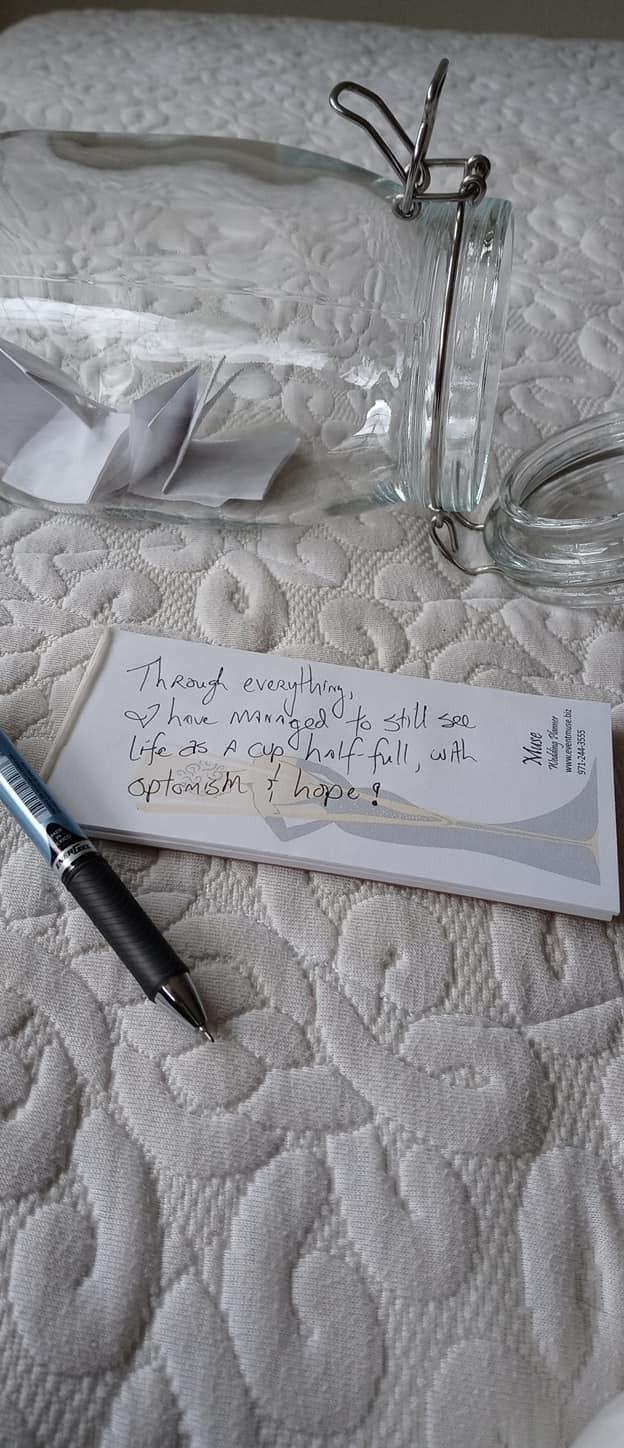 Through everything,
I have managed to still see
life as a cup half-full, with
optomism & hope!
Muse
Wedding Planner
www.eventmuse.biz
971-244-3555
ENERGEL